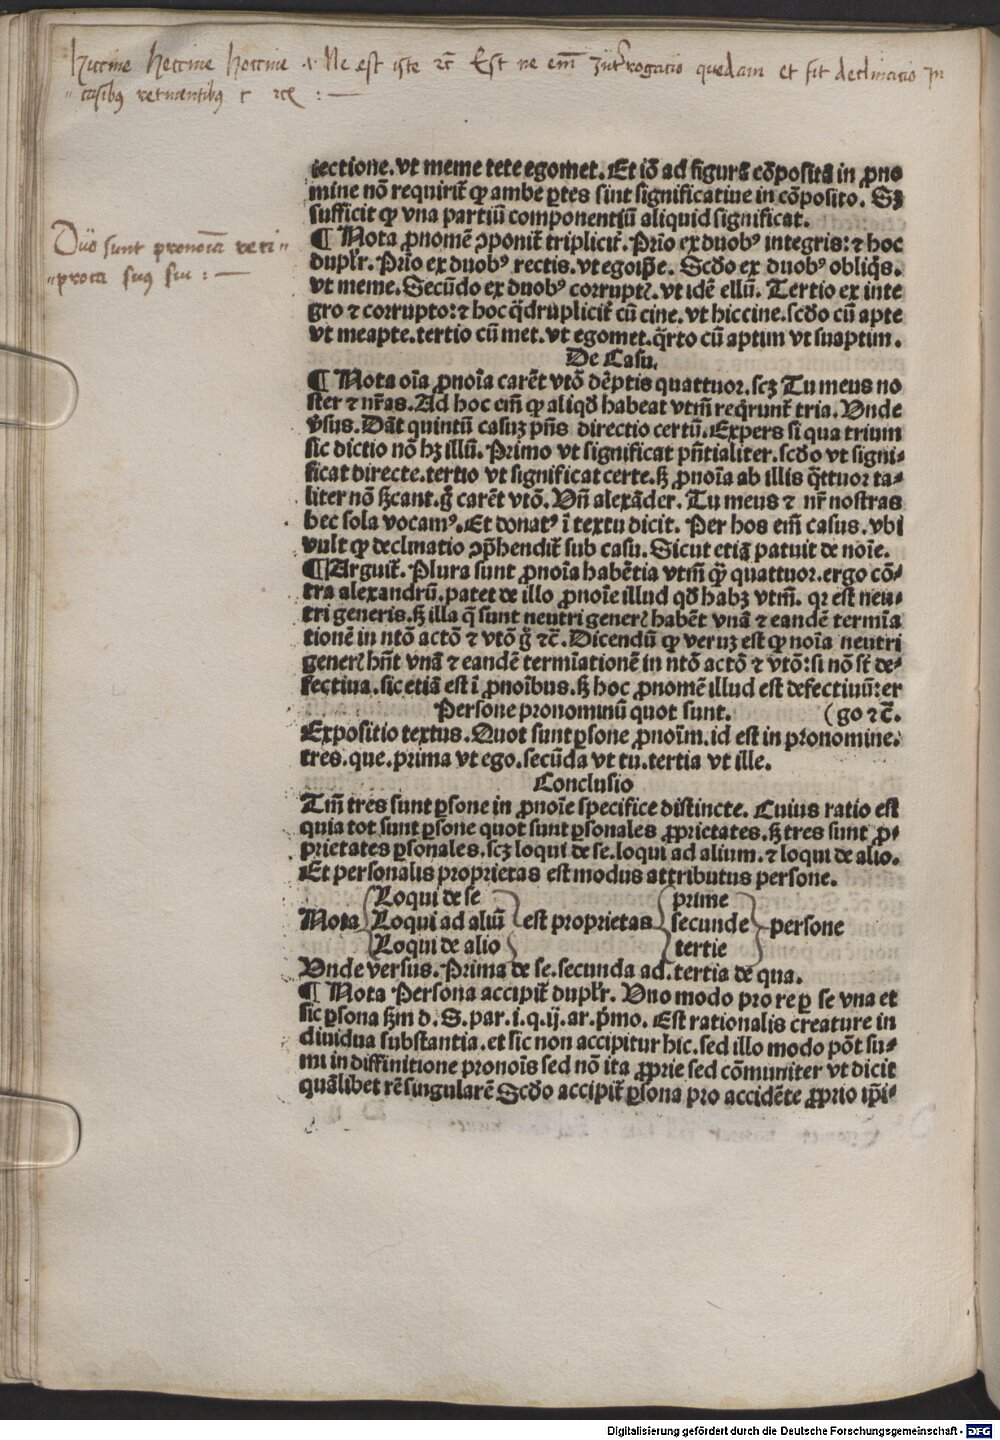 Hiccine Heccine Hoccine .i. Ne est iste ⁊c̄ Est ne em̄ Interrogatio quedam et fit declinatio In
casibꝰ retinentibꝰ c ⁊cꝭ : —
iectione. vt meme tete egomet. Et iō ad figurā cōpositā in ꝓno
mine nō requirit᷑ ꝙ ambe ꝑtes sint significatiue in cōposito. Sꝫ
sufficit ꝙ vna partiū componentiū aliquid significat.
Duo sunt pronoīa reci-
-proca suꝰ sui : —
¶ Nota ꝓnomē ꝯponit᷑ triplicit᷑. Prīo ex duobꝰ integris: ⁊ hoc
duplr̄. Prīo ex duobꝰ rectis. vt egoip̄e. Scd̄o ex duobꝰ obliq̄s.
vt meme. Secūdo ex duobꝰ corruptꝭ. vt idē ellū. Tertio ex inte
gro ⁊ corrupto: ⁊ hoc q̄druplicit᷑ cū cine. vt hiccine. scd̄o cū apte
vt meapte. tertio cū met. vt egomet. q̄rto cū aptun vt suaptun.
De Casu.
¶ Nota oīa ꝓnoīa carēt vtō dēptis quattuor. scꝫ Tu meus no
ster ⁊ nr̄as. Ad hoc em̄ ꝙ aliqd̄ habeat vtm̄ reqrunt᷑ tria. Vnde
v̓sus. Dāt quintū casuꝫ pn̄s directio certū. Expers si qua trium
sic dictio nō hꝫ illū. Primo vt significat pn̄tialiter. scd̄o vt signi-
ficat directe. tertio vt significat certe. sꝫ ꝓnoīa ab illis q̄ttuor ta-
liter nō sꝫcant. g̊ carēt vtō. Vn̄ alexāder. Tu meus ⁊ nr̄ nostras
hec sola vocamꝰ. Et donatꝰ ī textu dicit. Per hos em̄ casus. vbi
vult ꝙ declinatio ꝯp̄hendit᷑ sub casu. Sicut etiā patuit de noīe.
¶ Arguit᷑. Plura sunt ꝓnoīa habētia vtm̄ qꝫ̄ quattuor. ergo cō-
tra alexandrū. patet de illo ꝓnoīe illud qd̄ habꝫ vtm̄. qꝛ est neu-
tri generis. sꝫ illa q̄ sunt neutri generꝭ habēt vnā ⁊ eandē termīa
tionē in ntō actō ⁊ vtō g̊ ⁊c̄. Dicendū ꝙ veruꝫ est ꝙ noīa neutri
generꝭ hn̄t vnā ⁊ eandē termīationē in ntō actō ⁊ vtō: si nō st̄ de-
fectiua. sic etiā est ī ꝓnoībus. sꝫ hoc ꝓnomē illud est defectiuū: er
Persone pronominū quot sunt. (go ⁊c̄.
Expositio textus. Quot sunt ꝑsone ꝓnoīm. id est in pronomine.
tres. que. prima vt ego. secūda vt tu. tertia vt ille.
Conclusio
Tm̄ tres sunt ꝑsone in ꝓnoīe specifice distincte. Cuius ratio est
quia tot sunt ꝑsone quot sunt ꝑsonales ꝓprietates. sꝫ tres sunt ꝓ-
prietates ꝑsonales. scꝫ loqui de se. loqui ad alium. ⁊ loqui de alio.
Et personalis proprietas est modus attributus persone.
Loqui de se prime
Nota Loqui ad aliū est proprietas secunde persone
Loqui de alio tertie
Vnde versus. Prima de se. secunda ad. tertia de qua.
¶ Nota Persona accipit᷑ duplr̄. Vno modo pro re ꝑ se vna et
sic ꝑsona sꝫm d. S. par. i. q. ij. ar. p̄mo. Est rationalis creature in
diuidua substantia. et sic non accipitur hic. sed illo modo pōt su-
mi in diffinitione pronoīs sed nō ita ꝓprie sed cōmuniter vt dicit
quālibet rē singularē Scd̄o accipit᷑ ꝑsona pro accidēte ꝓprio ip̄i-
Digitalisierung gefördert durch die Deutsche Forschungsgemeinschaft - DFG